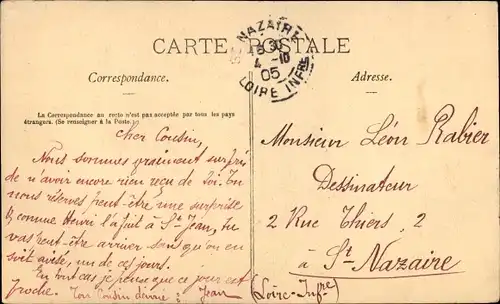 CARTE POSTALE
ST NAZAIRE
15 30
4 -10
05
LOIRE INFRE
Correspondance.
Adresse.
La Correspondance au recto n'est pas acceptée par tous les pays
étrangers. (Se renseigner à la Poste.)
Cher Cousin,
Nous sommes vraiment surpris
de n'avoir encore rien reçu de toi. Tu
nous réserves peut-être une surprise
& comme Henri l'a fait à St-Jean, tu
vas peut-être arriver sans qu'on en
soit avisé, un de ces jours.
En tout cas je pense que ce jour est
proche. Ton Cousin dévoué : Jean
Monsieur Léon Rabier
Dessinateur
2 Rue Thiers, 2
à St Nazaire
(Loire-Infre)